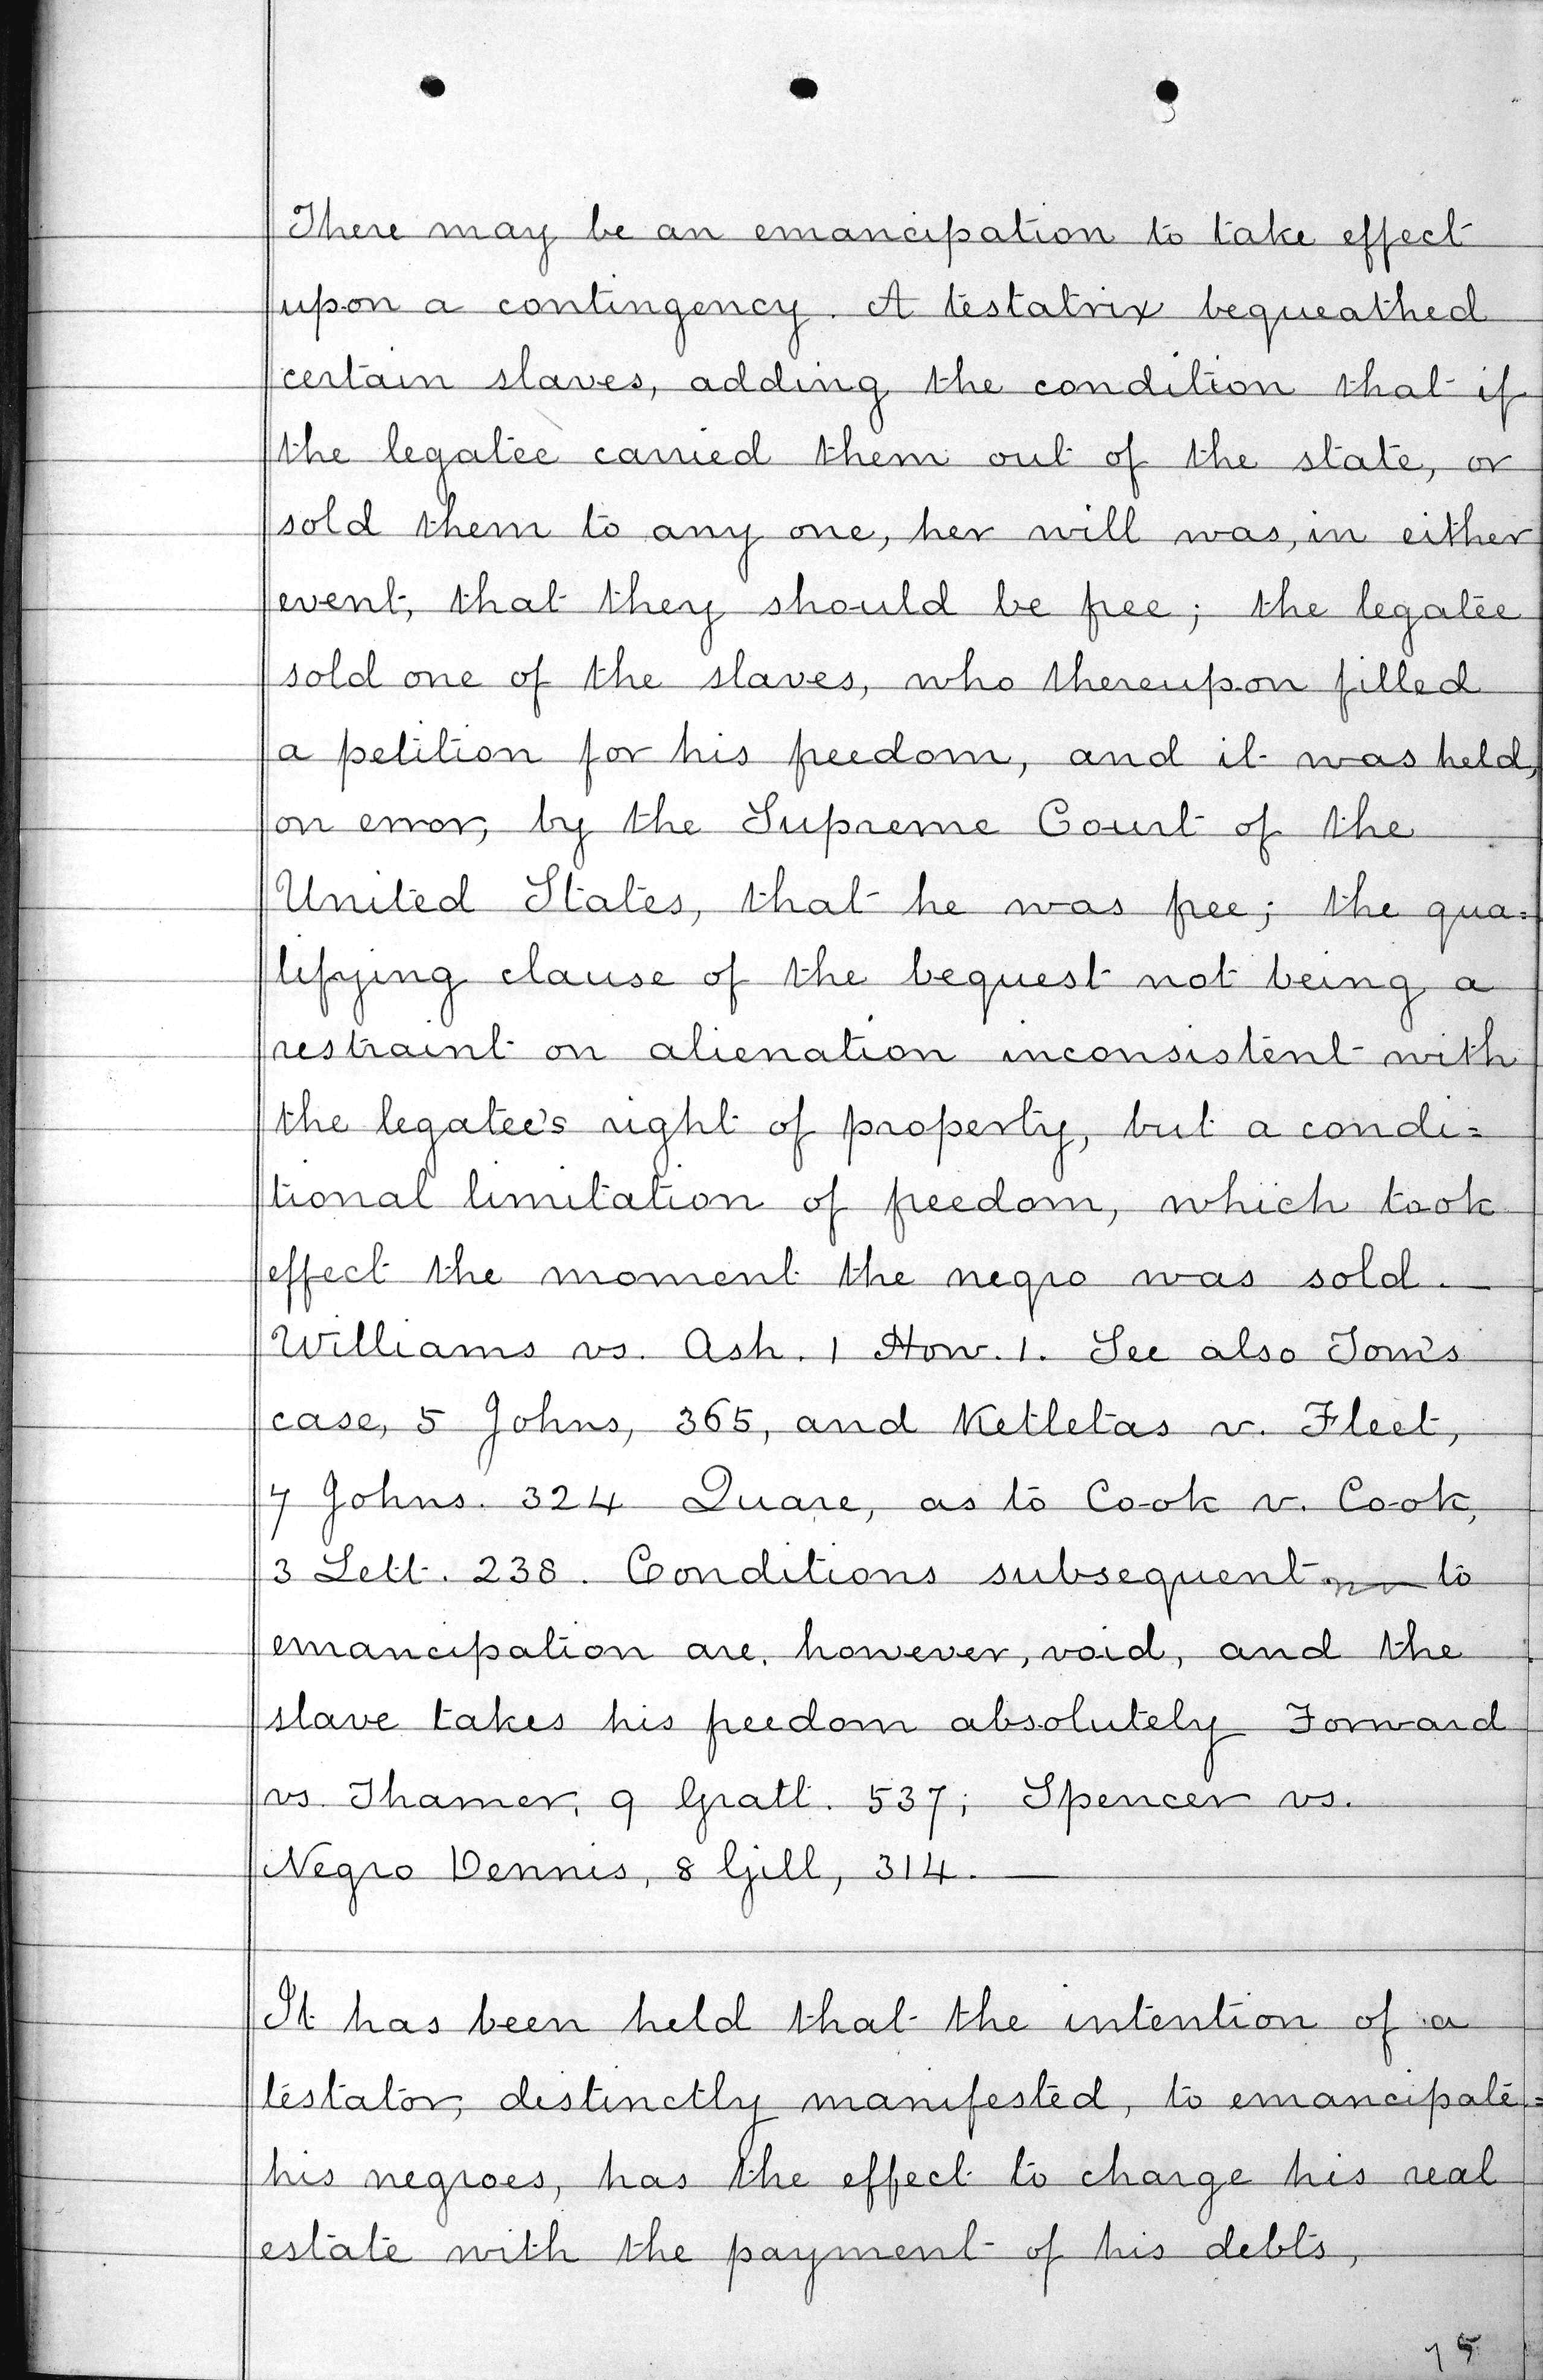 There may be an emancipation to take effect
upon a contingency. A testatrix bequeathed
certain slaves, adding the condition that if
the legatee carried them out of the state, or
sold them to any one, her will was, in either
event, that they should be free; the legatee
sold one of the slaves, who thereupon filled
a petition for his freedom, and it was held,
on error, by the Supreme Court of the
United States, that he was free; the qua=
lifying clause of the bequest not being a
restraint on alienation inconsistent with
the legatee's right of property, but a condi=
tional limitation of freedom, which took
effect the moment the negro was sold.—
Williams vs. Ash. 1 How. 1. See also Tom's
case, 5 Johns, 365, and Ketletas v. Fleet,
7 Johns. 324 Quare, as to Cook v. Cook,
3 Lett. 238. Conditions subsequent to
emancipation are, however, void, and the
slave takes his freedom absolutely Forward
vs. Thamer, 9 Gratt. 537; Spencer vs.
Negro Dennis, 8 Gill, 314.—
It has been held that the intention of a
testator, distinctly manifested, to emancipate=
his negroes, has the effect to charge his real
estate with the payment of his debts,
75